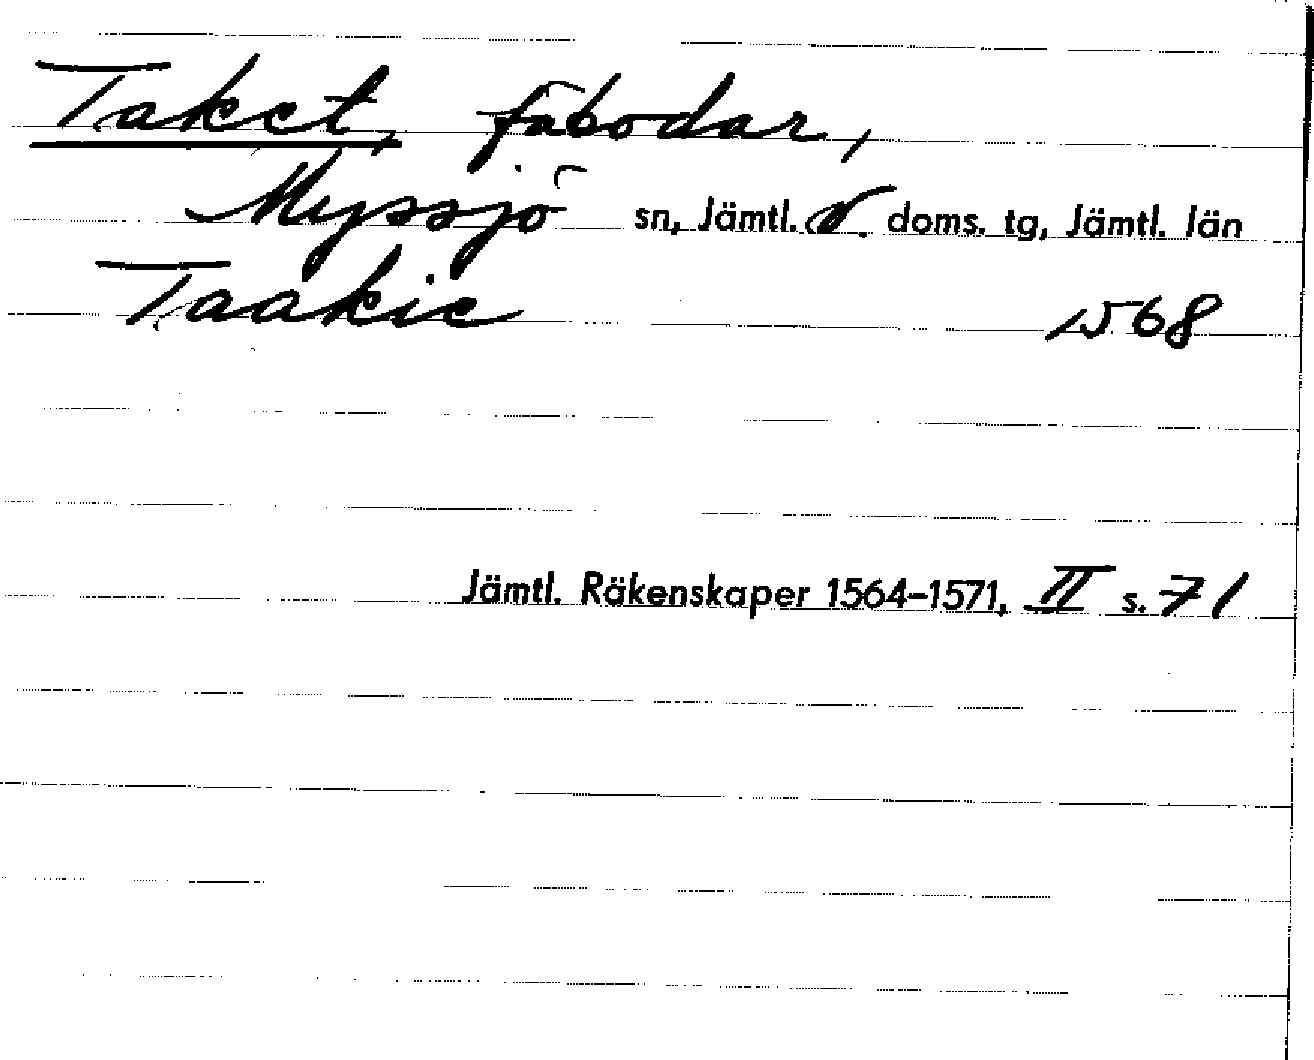 Taket, fäbodar,
Myssjö sn, Jämtl. v. doms. tg, Jämtl. län
Taakie 1568
Jämtl. Räkenskaper 1564–1571, II s. 71